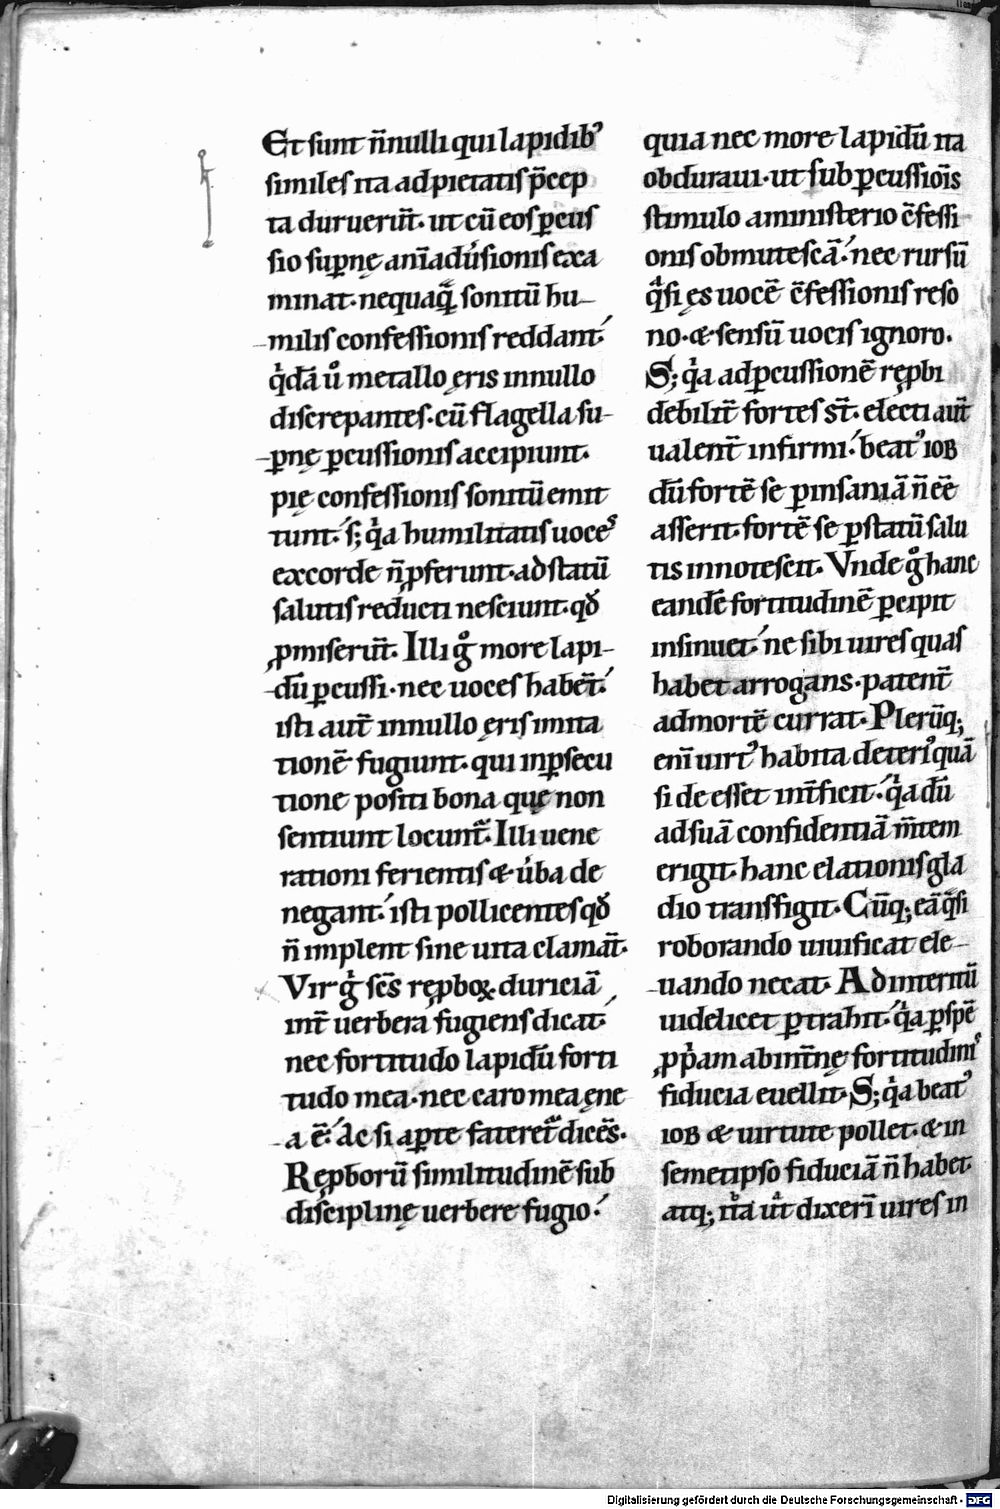 Et sunt n̄nulli qui lapidib᾽
similes ita ad pietatis p̄cep
ta duruerūt. ut cū eos ꝑcus
sio suꝑnę anīadúsionis exa
minat. nequaꝗ̄ sonitū hu-
milis confessionis reddant.
q̇dā ů metallo ęris innullo
discrepantes. cū flagella su-
ꝑnę ꝑcussionis accipiunt.
pię confessionis sonitū emit
tunt. s; q̇a humilitatis uoces
ex corde n̄ ꝓferunt. ad statū
salutis reducti nesciunt. qď
ꝓmiserūt. Illi g̊ more lapi-
dū ꝑcussi. nec uoces habēt.
isti aut̄ innullo ęris imita
tionē fugiunt. qui in ꝑsecu
tione positi bona quę non
sentiunt locunt̄. Illi uene
rationi ferientis & úba de
negant. isti pollicentes qď
n̄ implent sine uita clamāt.
Vir g̊ sc̄s reꝓboꝝ duriciā
int̄ uerbera fugiens dicat.
nec fortitudo lapidū forti
tudo mea. nec caro mea ęne
a ē. Ac si aꝑte fateret̄ dicēs.
Reꝓborū similitudinē sub
disciplinę uerbere fugio.
quia nec more lapidū ita
obduraui. ut sub ꝑcussiōis
stimulo a ministerio c̄fessi-
onis obmutescā. nec rursū
q̇̄si ęs uocē c̄fessionis reso
no. & sensū uocis ignoro.
S; q̇a ad ꝑcussionē reꝓbi
debilit̄ fortes st̄. electi aut̄
ualent̄ infirmi. beat᾽ iob
dū fortē se ꝑ insaniā n̄ eē
asserit. fortē se ꝑ statū salu
tis innotescit. Vnde g̊ hanc
eandē fortitudinē ꝑcipit
insinuet. ne sibi uires quas
habet arrogans. patent̄
ad mortē currat. Plerūq;
eni᷑ uirt᾽ habita deteri᾽ quā
si deesset int̄ficit. q̇a dū
ad suā confidentiā m̄tem
erigit. hanc elationis gla
dio transfigit. Cūq; eā q̇̄si
roborando uiuificat ele-
uando necat. Ad interitū
uidelicet ꝑtrahit. q̇a ꝑ spē
ꝓp̄am ab int̄nę fortitudinis
fiducia euellit. S; q̇a beat᾽
iob & uirtute pollet. & in
semetipso fiduciā n̄ habet.
atq; ita ut̄ dixerī uires in